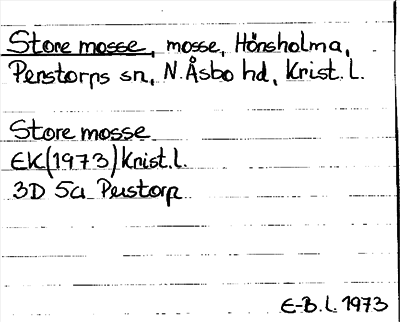 Store mosse, mosse, Hönsholma,
Perstorps sn, N. Åsbo hd, Krist. L.
Store mosse
EK(1973) Krist. l.
3D 5a Perstorp
E-B. L. 1973